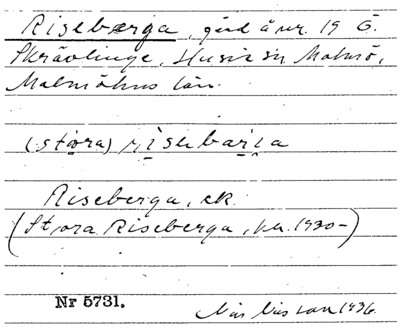 Riseberga, gård å nr. 19 Ö.
Skrävlinge, Husie sn Malmö,
Malmöhus län.
(stora) risəbarja
Riseberga, ek.
(Stora Riseberga, ka. 1930-)
Nr 5731.
1936.